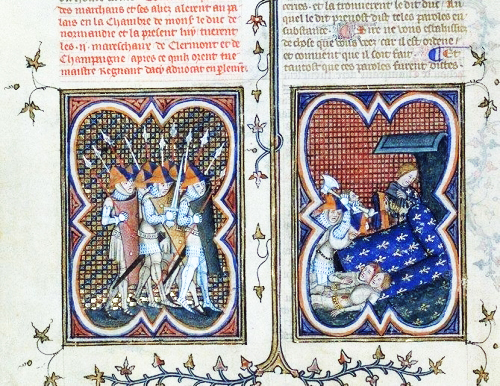 des marchans et ses abez alerent au pa
lais en la Chambre de mons. le duc de
normandie et la present luy tuerent
les .ii. mareschaux de Clermont et de
Champaigne apres ce quilz orent tue
maistre Regnaut dacy advocat en plemt.
cenes. et la trouverent le dit duc. Au
quel le dit prevost dist teles paroles en
substance. Sire ne vous esbahissiez
de chose que vous veez car il est ordene
et convient que il soit fait. Et
tantost que ces paroles furent dictes